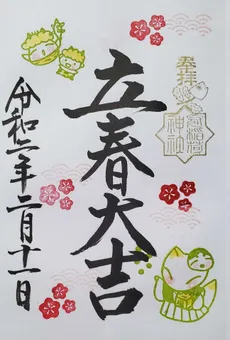 奉拝
神社
立春大吉
令和二年二月十一日